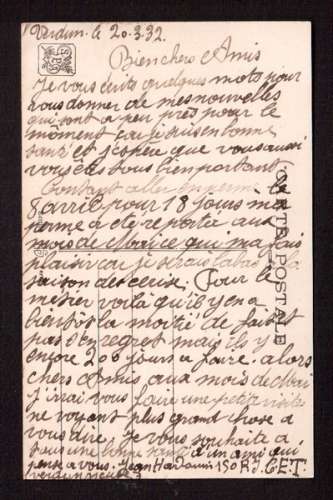 Verdun. le 20.3.32.
Bien chers Amis
Je vous écrits quelques mots pour
vous donner de mes nouvelles
qui sont a peu près pour le
moment car je suis en bonne
santé et j'espère que vous aussi
vous êtes tous bien portant.
Contant aller en perme le
8 avril pour 18 jours ma
perme a ete reporté aux
mois de Mai ce qui ma fais
plaisir car je serais labas a la
saison des ceuse. Pour le
métier voila qu'il y en a
bientôt la moitié de fais et
pas de regret mais ils y
encore 200 jours a faire. alors
chers Amis aux mois de Mai
j'irrai vous faire une petite visite
ne voyant plus grand chose a
vous dire, je vous souhaite a
tous une bonne santé d'un ami qui
pense a vous. Jean 150 R.I. C.E.T.
Verdun Meuse
CARTE POSTALE